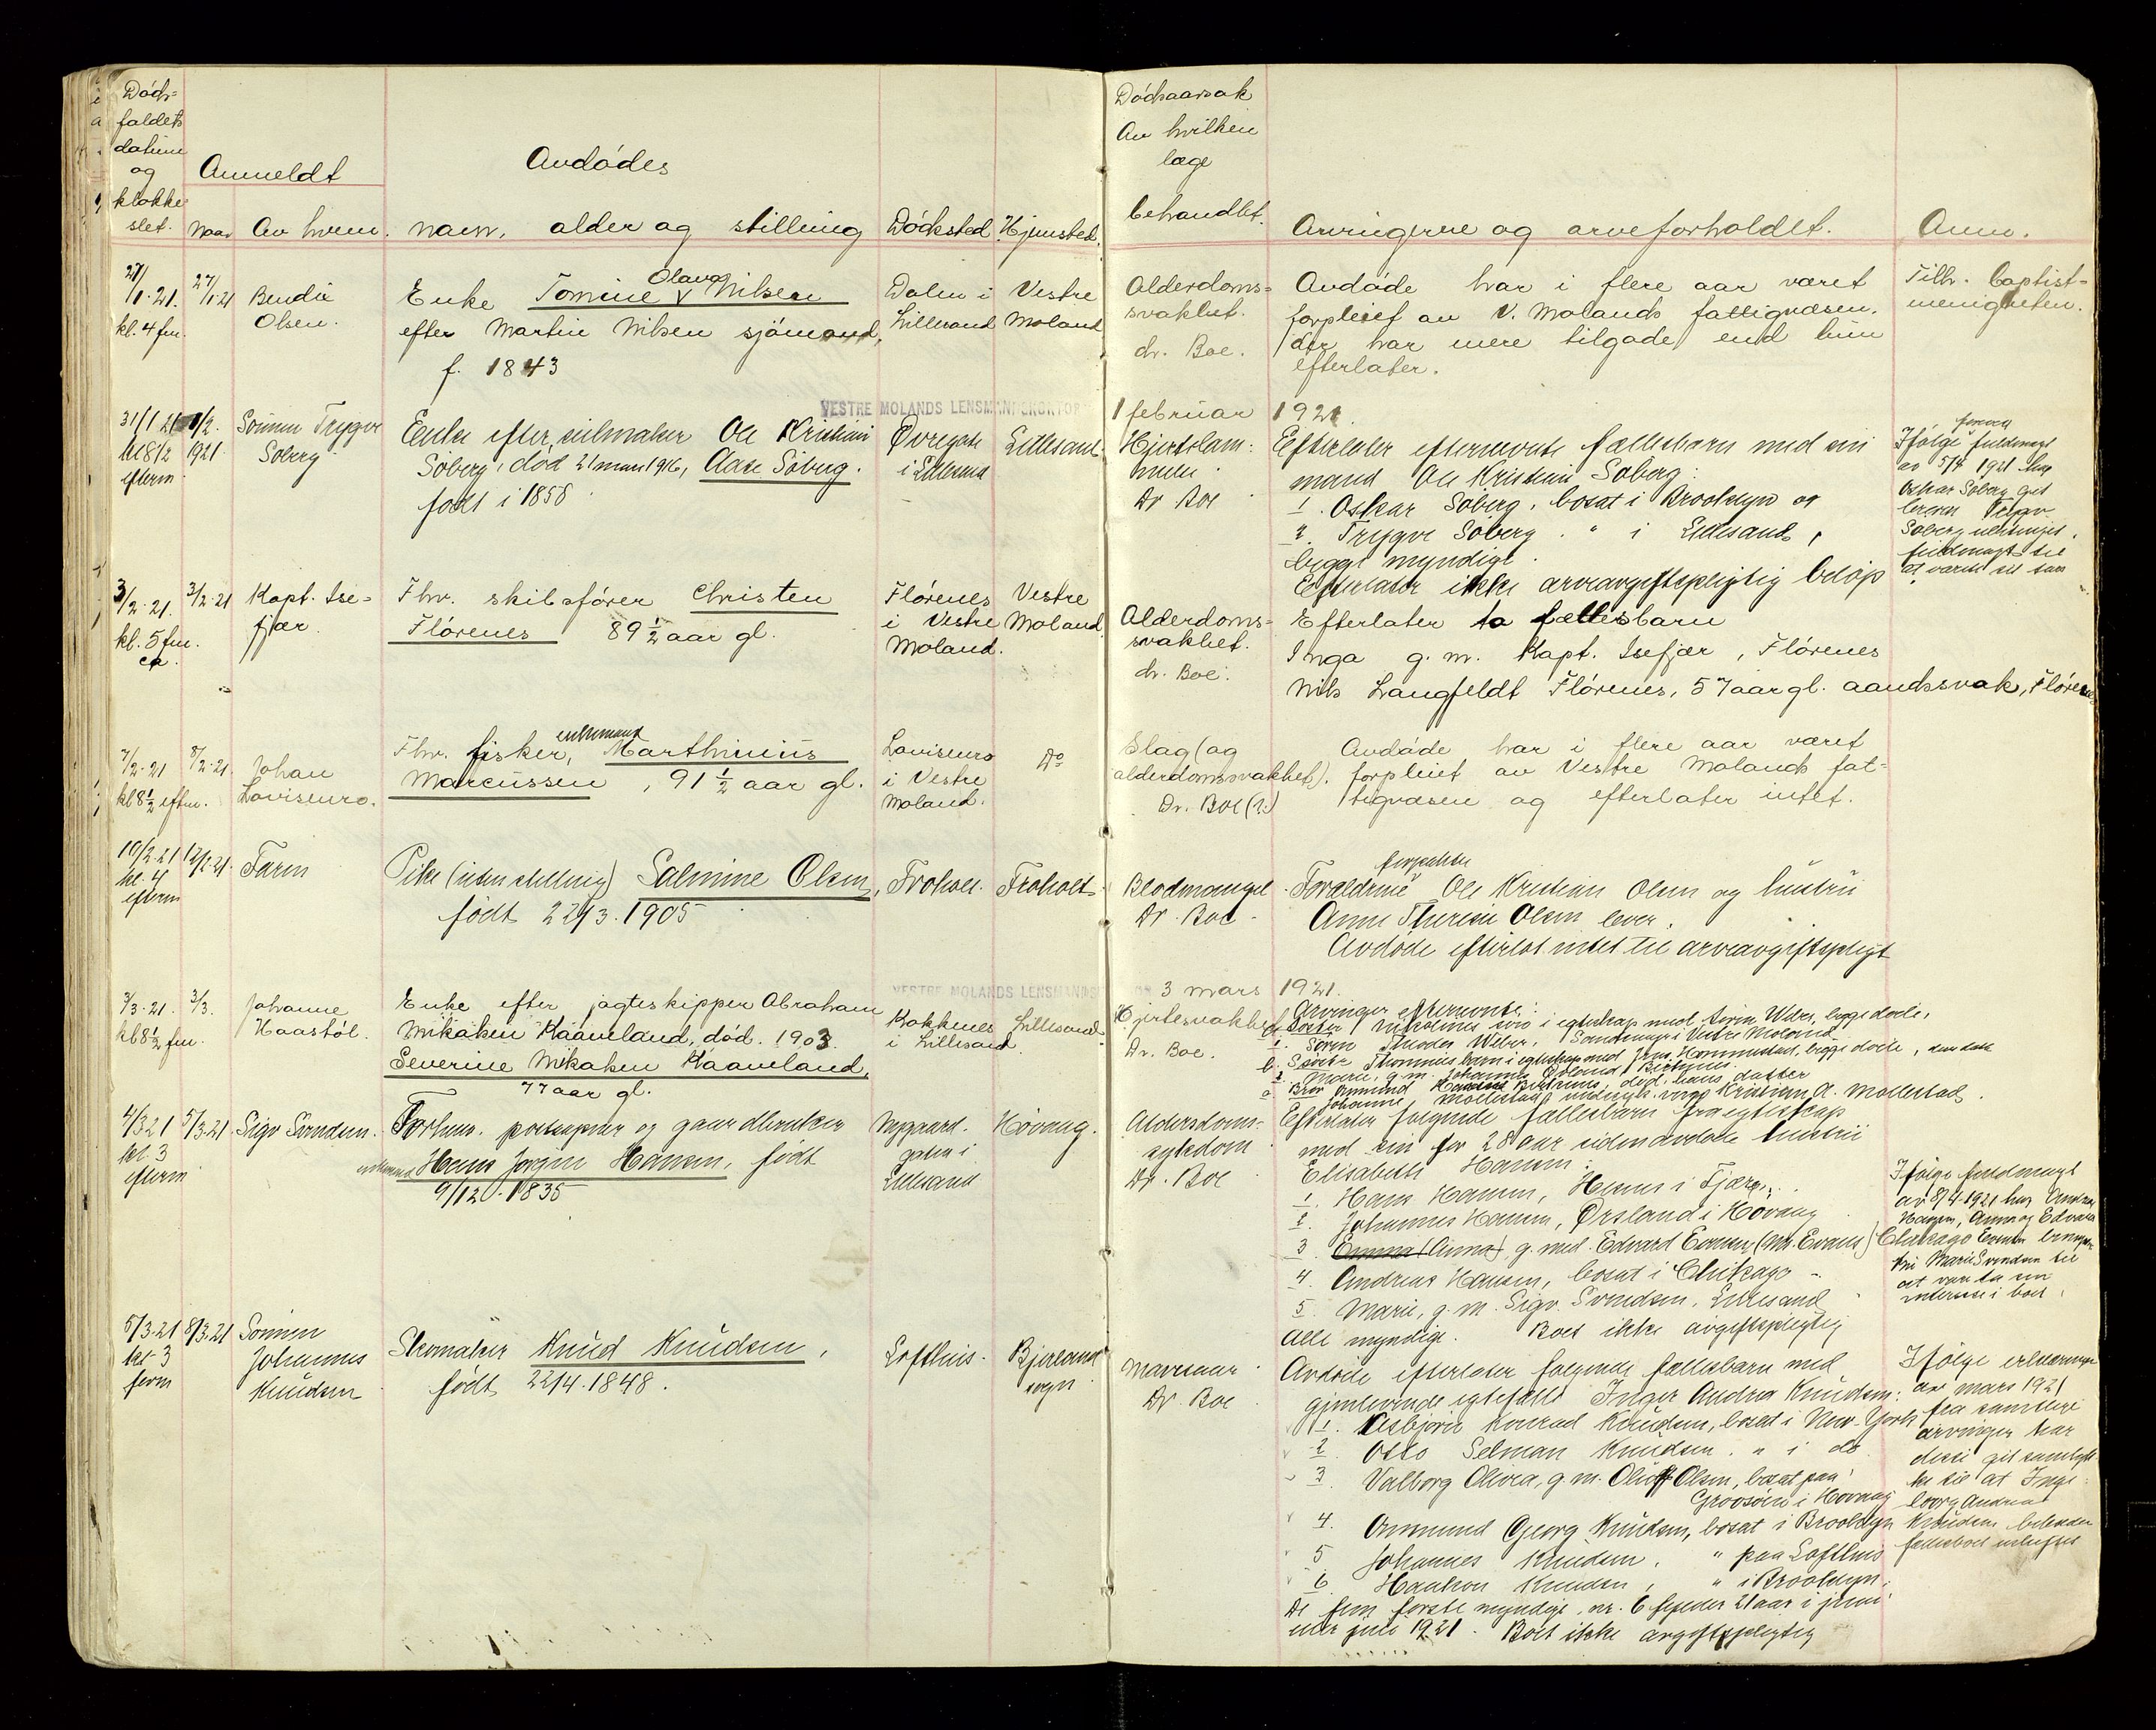 Døds-
faldets
datum
og
klokke
slet.
Anmeldt
Naar
Av hvem.
Avdødes
navn, alder og stilling
Dødssted
Hjemsted.
Dødsaarsak
Av hvilken
læge
behandlet.
Arvingerne og arveforholdet.
Anm.
27/1.21.
kl. 4 fm.
27/1.21
Bendix
Olsen.
Enke Tomine Olava Nilsen
efter Martin Nilsen sjømand,
f. 1843
Dalen i
Lillesand
Vestre
Moland
Alderdoms-
svakhet.
dr. Boe.
Avdøde har i flere aar været
forpleiet av V. Molands fattigvæsen.
der har mere tilgode end hun
efterlater.
Tilh. Baptist-
menigheten.
VESTRE MOLANDS LENSMANDSKONTOR
1 februar 1921.
31/1 21
kl 8 1/2
efterm
1/2.
1921
Sønnen Trygve
Søberg
Enke efter seilmaker Ole Kristian
Søberg, død 21 mars 1916, Aase Søberg.
født i 1858
Øvregate
i Lillesand
Lillesand
Hjertelam-
melse.
Dr Boe
Efterlater efternævnte fællesbarn med sin
mand Ole Kristian Søberg:
1. Oskar Søberg, bosat i Brooklyn og
2. Trygve Søberg " i Lillesand,
begge myndige.
Efterlater ikke arveavgiftspligtig beløp
Ifølge fuldmagt
av 5/4 1921 har
Oskar Søberg git
Trygve
Søberg
fuldmagt til
at vareta
3/2.21.
kl. 5 fm.
ca.
3/2.21
Kapt. Ise-
fjær.
Fhv. skibsfører Christen
Flørenes 89 1/2 aar gl.
Flørenes
i Vestre
Moland.
Vestre
Moland.
Alderdoms-
svakhet.
dr. Boe.
Efterlater to fællesbarn
Inga g. m. Kapt. Isefjær, Flørenes
Nils Langfeldt Flørenes, 57 aar gl. aandssvak, Flørenes
7/2.21
kl 8 1/2 eftm.
8/2.21.
Johan
Lovisenro.
Fhv. fisker, enkemand Marthinius
Marcussen, 91 1/2 aar gl.
Lovisenro
i Vestre
Moland.
Do
Slag (og
alderdomssvakhet).
Dr. Boe (?)
Avdøde har i flere aar været
forpleiet av Vestre Molands fat-
tigvæsen og efterlater intet.
10/2.21
kl. 4
efterm
12/2.21.
Faren
Pike (uten stilling) Salmine Olsen,
født 22/3.1905
Froholt.
Froholt
Blodmangel
Dr. Boe
Forældrene forpakter Ole Kristian Olsen og hustru
Anne Therese Olsen lever.
Avdøde efterlot intet til arveavgiftspligt
VESTRE MOLANDS LENSMANDS
3 mars 1921.
3/3.21.
kl 8 1/2 fm.
3/3.
Johanne
Haastøl.
Enke efter jagteskipper Abraham
Mikaken Kaaveland, død 1903
Severine Mikaken Kaaveland,
77 aar gl.
Kokkenes
i Lillesand.
Lillesand
Hjertesvakhet
Dr. Boe.
Arvinger efternævnte:
Søster Nikoline i egteskap med Weber, begge døde,
1. Søren Theodor Weber, i Vestre Moland
b. Søster barn i egteskap med Jens Hommestad, begge døde,
1. Marie, g. m. Johannes
Bror død, hans datter
Johanne Møllestad, verge Kristian A. Møllestad.
4/3 21
kl 3
efterm
5/3.21.
Sigv Svendsen.
Forhenv. postaapner og gaardbruker
enkemand Hans Jørgen Hansen, født
9/12.1835
Nygaard-
gaten i
Lillesand
Høvaag.
Alderdoms-
sykdom
Dr. Boe
Efterlater følgende fællesbarn fra egteskap
med sin for 28 aar siden avdøde hustru
Elisabeth Hansen:
1. Hans Hansen, Homme i Fjære,
2. Johannes Hansen, Ørsland i Høvaag
3. Emma (Anna), g. med. Edvard Evensen (Mr. Evans) Chicago
4. Andreas Hansen, bosat i Chicago
5. Marie, g. m. Sigv. Svendsen, Lillesand
Alle myndige. Boet ikke avgiftspligtig
Ifølge fuldmagt
av 8/4.1921 har Andreas
Hansen, Anna og Edvard
Evensen
fru Marie Svendsen til
at vareta sin
interesse i boet.
6/3.21
kl 3
form
8/3.21
Sønnen
Johannes
Knudsen
Skomaker Knud Knudsen,
født 22/4.1848.
Lofthus.
Bjelland
sogn
Mavesaar
Dr. Boe
Avdøde efterlater følgende fællesbarn med
gjenlevende egtefælle Inger Andrea Knudsen:
1. Asbjørn Konrad Knudsen, bosat i New-York
2. Otto Selman Knudsen. " i do
3. Valborg Olivia, g. m. Oluf Olsen, bosat paa
Grøosøen i Høvaag
4. Ommund Georg Knudsen, bosat i Brooklyn
5. Johannes Knudsen, " paa Lofthus
6. Haakon Knudsen, " i Brooklyn.
De fem første myndige, nr. 6 fyder 21 aar i juni
eller juli 1921. Boet ikke avgiftspligtig
Ifølge erklæringer
av mars 1921
fra samtlige
arvinger har
disse git samtyk-
ke til at Inge-
borg Andrea
Knudsen beholder
fællesboet uskiftet